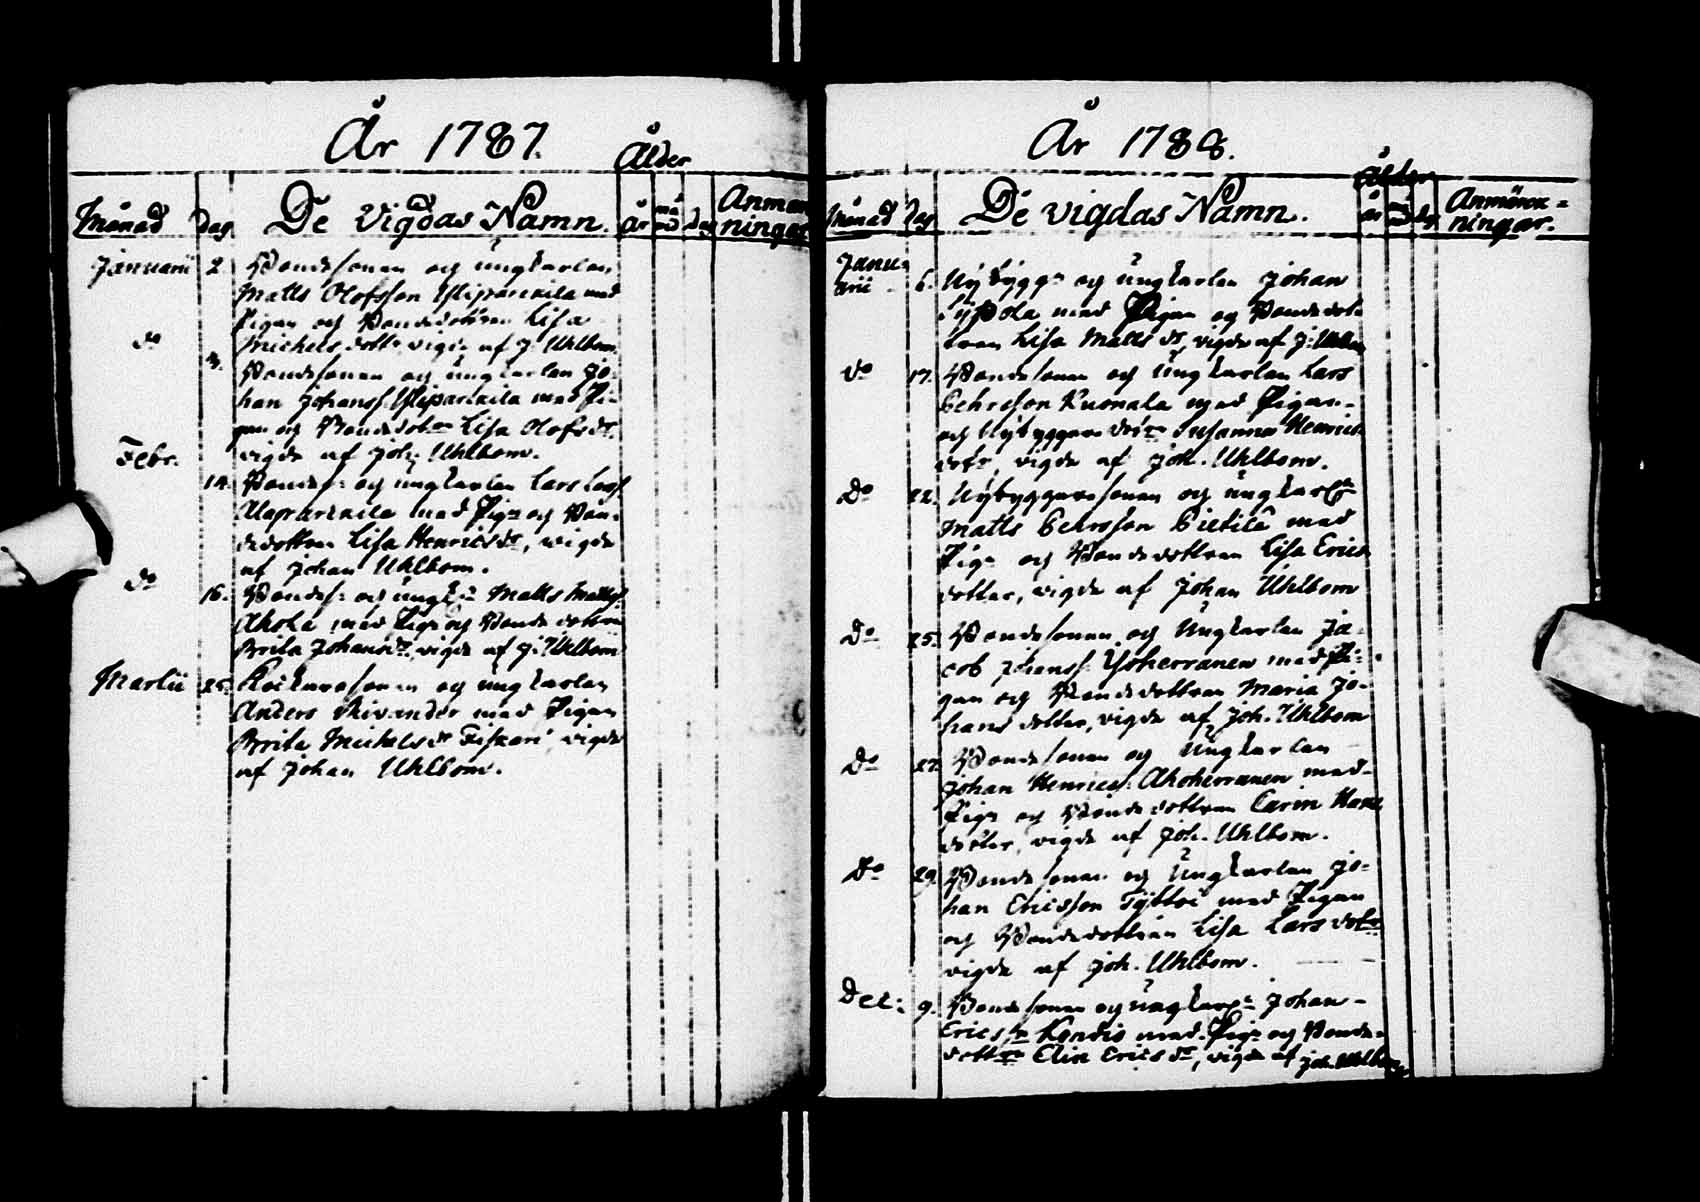 År 1787.
Ålder
Månad dag. De Vigdas Namn. år må nad dag Anmär
ningar
Januarii 2. Bondesonen og ungkarlen
Matts Olofsson Yliparckila med
Pigan og Bondedottren Lisa
do Michels dottr vigde af J. Uhlbom
3. Bondesonen og ungkarlen Jo-
han Johanss: Yliparckila med Pi-
gan og Bondedotren Lisa Olofs dr
vigde af Joh. Uhlbom.
Febr.
14. Bondes: og ungkarlen Lars Larss.
Alaparckila med Pign og Bon-
dedottren Lisa Henrics dr, vigde
af Johan Uhlbom.
do 16. Bondes: og ungk: Matts Mattss:
Ahola med Pign og Bonde dottren
Brita Johans dr, vigde af J. Uhlbom
Martii 25. sonen og ungkarlen
Anders med Pigan
Brita Michels dr Fiskari vigde
af Johan Uhlbom.
År 1788.
Ålder
Månad dag De vigdas Namn. år må nad dag Anmärck-
ningar.
Janu-
arii 6. Nybygg: og ungkarlen Johan
med Pigan og Bondedot-
tren Lisa Matts dr, vigde af J: Uhlbom
do 17. Bondesonen og Ungkarlen Lars
Pehrsson Kuonala med Pigan
og Nybyggare dotren Susanna Henrics
dotr, vigde af Joh. Uhlbom.
Do 22. Nybyggaresonen og ungkarln
Matts Pehrsson Pietilä med
Pign og Bondedottren Lisa Erics
dotter, vigde af Johan Uhlbom
Do 25. Bondesonen og Ungkarlen Ja-
cob Johanss: Ysoherranen med Pi-
gan og Bondedottren Maria Jo-
hans dotter, vigde af Joh. Uhlbom
Do 27. Bondesonen og Ungkarlen
Johan Henrics: Ahoherranen med
Pign og Bondedottren Carin Hans
dotter, vigde af Joh. Uhlbom.
Do 29. Bondesonen og Ungkarlen Jo-
han Ericsson Tyttöi med Pigan
og Bondedottren Lisa Lars dotr
vigde af Joh. Uhlbom.
Dec: 9. Bondesonen og ungkarln Johan
Ericssn Kondio med Pign og Bonde-
dottrn Elin Erics dr, vigde af Joh. Uhlbom